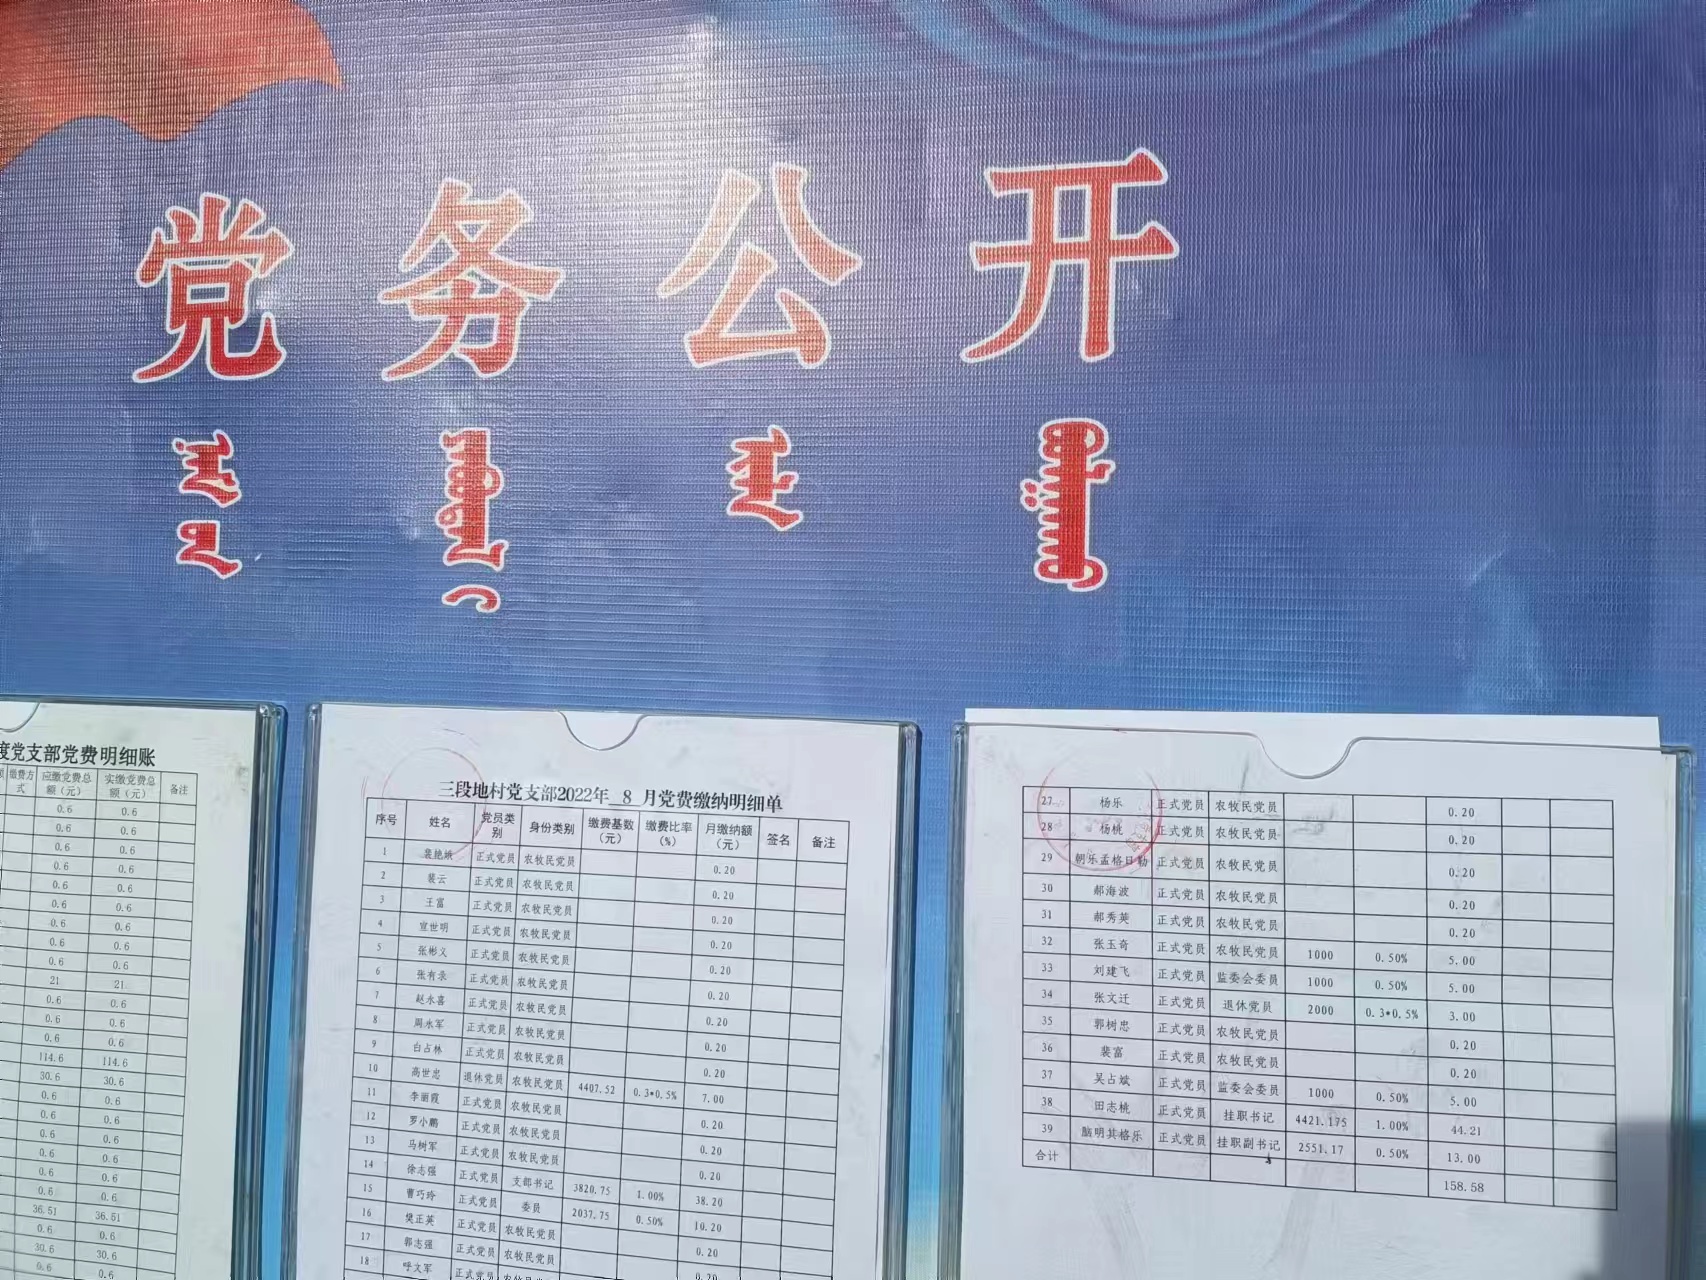 党务公开
度党支部党费明细账
缴费方式 应缴党费总额（元） 实缴党费总额（元） 备注
0.6 0.6
0.6 0.6
0.6 0.6
0.6 0.6
0.6 0.6
0.6 0.6
0.6 0.6
0.6 0.6
0.6 0.6
21 21
0.6 0.6
0.6 0.6
0.6 0.6
114.6 114.6
30.6 30.6
0.6 0.6
0.6 0.6
0.6 0.6
0.6 0.6
0.6 0.6
0.6 0.6
36.51 36.51
0.6 0.6
30.6 30.6
0.6 0.6
三段地村党支部2022年 8 月党费缴纳明细单
序号 姓名 党员类别 身份类别 缴费基数（元） 缴费比率（%） 月缴纳额（元） 签名 备注
1 裴艳娥 正式党员 农牧民党员 0.20
2 裴云 正式党员 农牧民党员 0.20
3 王富 正式党员 农牧民党员 0.20
4 宣世明 正式党员 农牧民党员 0.20
5 张彬义 正式党员 农牧民党员 0.20
6 张有录 正式党员 农牧民党员 0.20
7 赵永喜 正式党员 农牧民党员 0.20
8 周永军 正式党员 农牧民党员 0.20
9 白占林 正式党员 农牧民党员 0.20
10 高世忠 退休党员 农牧民党员 4407.52 0.3*0.5% 7.00
11 李丽霞 正式党员 农牧民党员 0.20
12 罗小鹏 正式党员 农牧民党员 0.20
13 马树军 正式党员 农牧民党员 0.20
14 徐志强 正式党员 支部书记 3820.75 1.00% 38.20
15 曹巧玲 正式党员 委员 2037.75 0.50% 10.20
16 樊正英 正式党员 农牧民党员 0.20
17 郭志强 正式党员 农牧民党员 0.20
18 呼文军 正式党员 农牧民党员
27 杨乐 正式党员 农牧民党员 0.20
28 杨桃 正式党员 农牧民党员 0.20
29 朝乐孟格日勒 正式党员 农牧民党员 0.20
30 郝海波 正式党员 农牧民党员 0.20
31 郝秀英 正式党员 农牧民党员 0.20
32 张玉奇 正式党员 农牧民党员 1000 0.50% 5.00
33 刘建飞 正式党员 监委会委员 1000 0.50% 5.00
34 张文迁 正式党员 退休党员 2000 0.3*0.5% 3.00
35 郭树忠 正式党员 农牧民党员 0.20
36 裴富 正式党员 农牧民党员 0.20
37 吴占斌 正式党员 监委会委员 1000 0.50% 5.00
38 田志桃 正式党员 挂职书记 4421.175 1.00% 44.21
39 脑明其格乐 正式党员 挂职副书记 2551.17 0.50% 13.00
合计 158.58